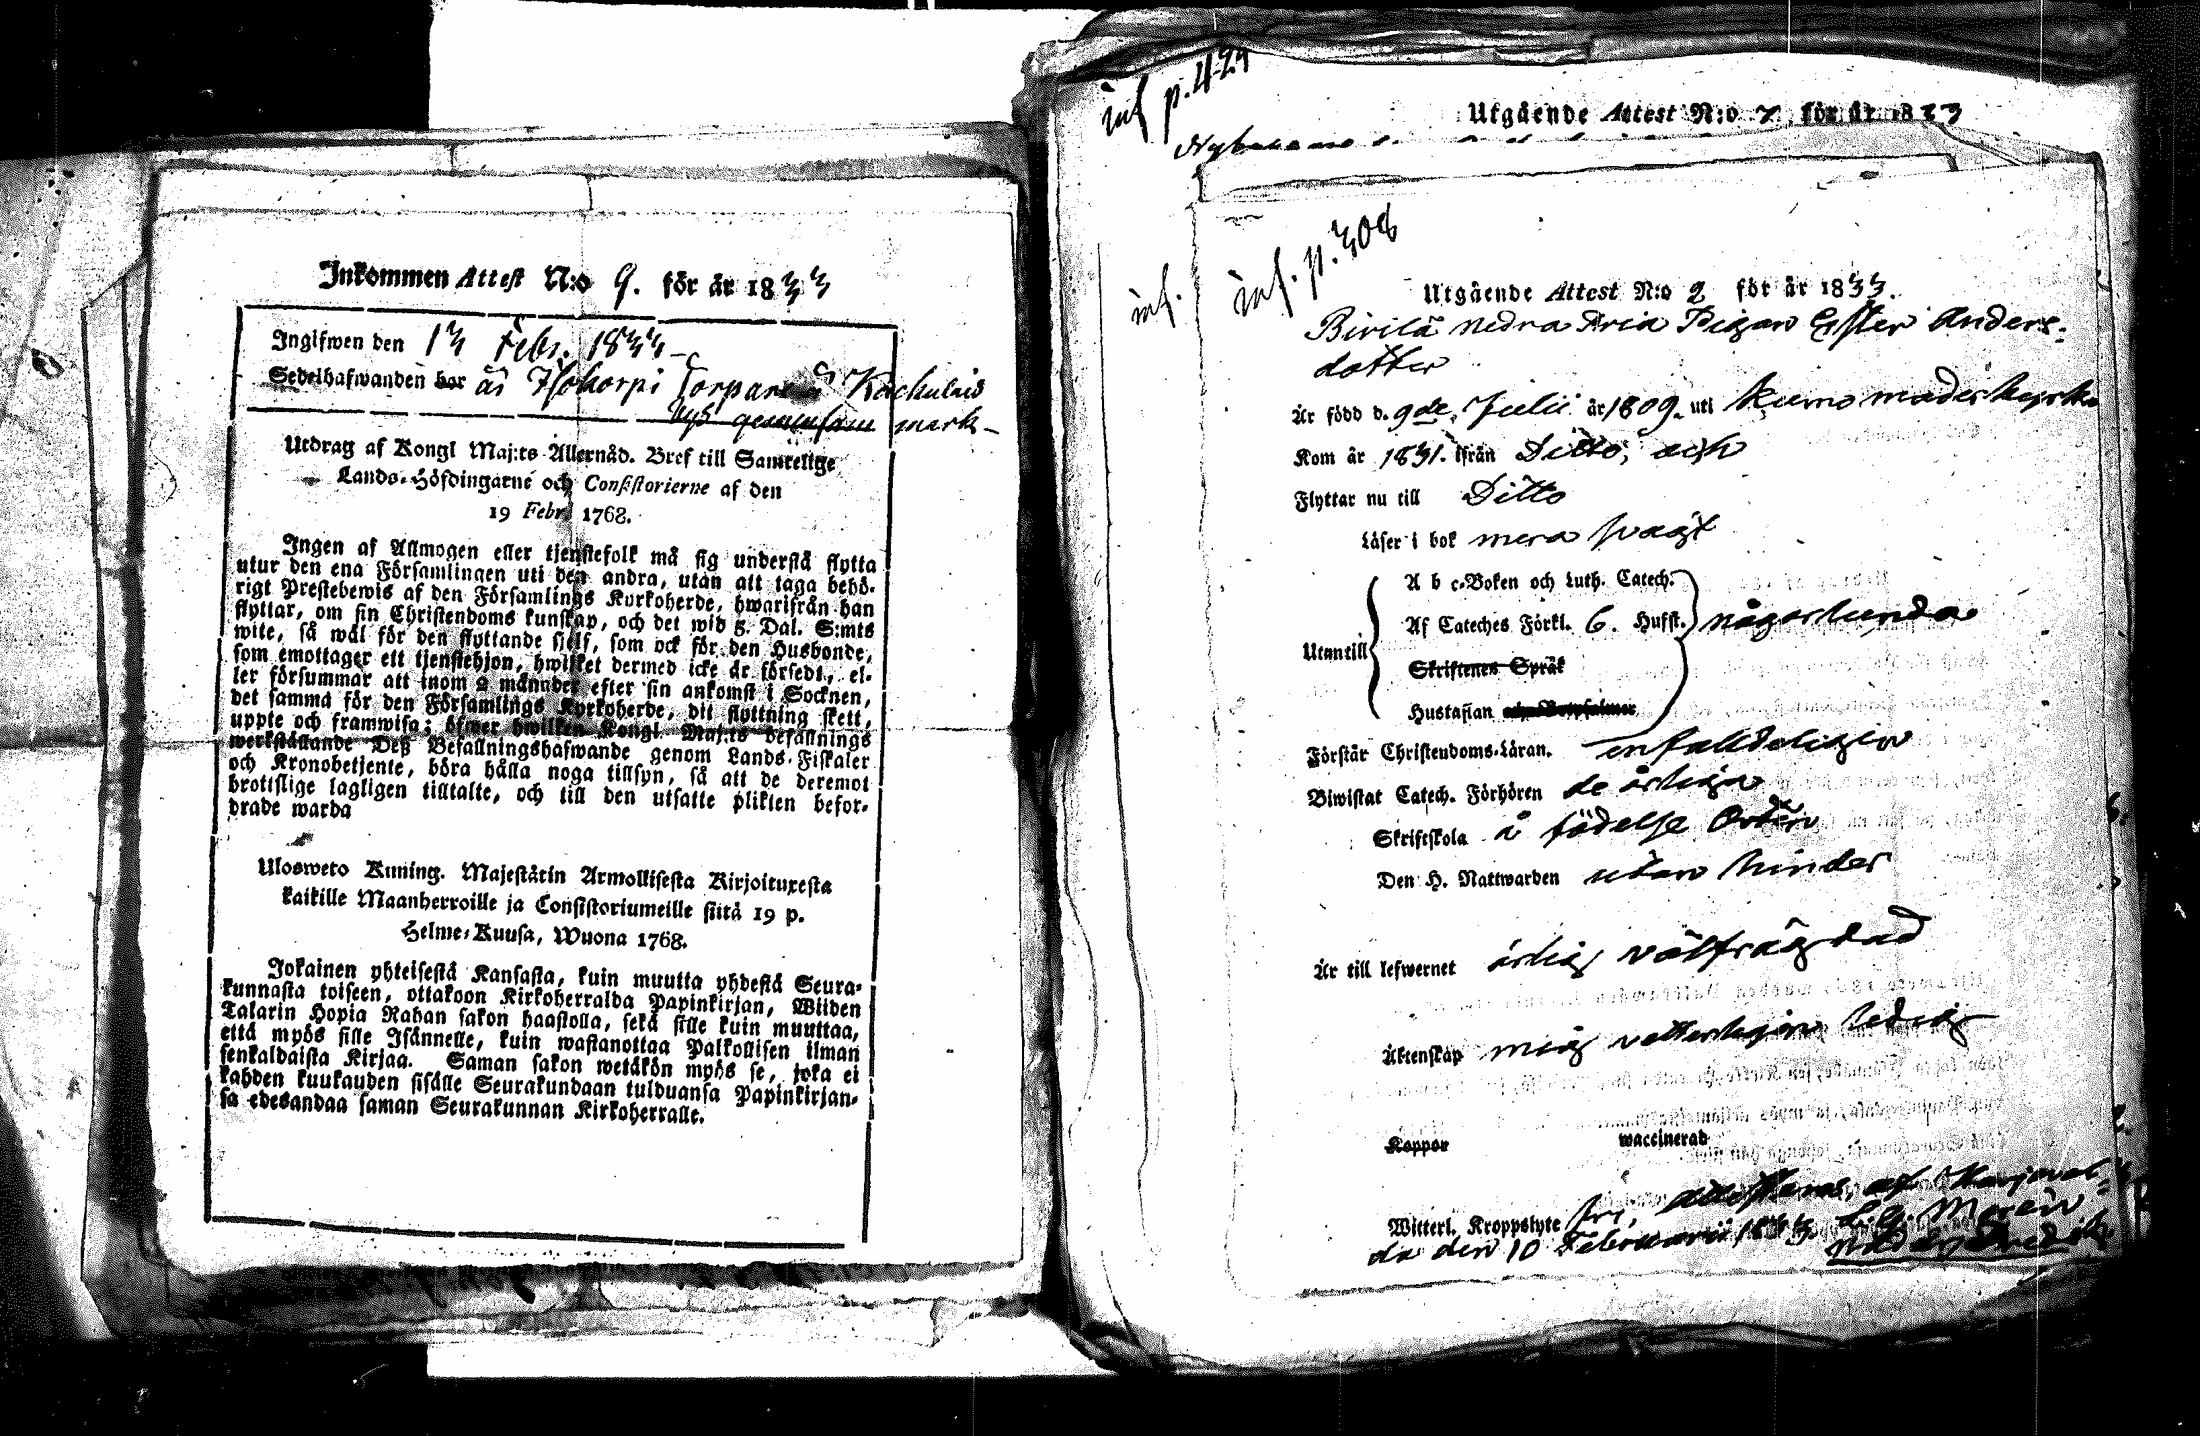 Inkommen Attest N:o 9. för år 1833
Ingifwen den 13 Febr. 1833
Sedelhafwanden har är Isokorpi Torpare
gemensam mark
Utdrag af Kongl Maj:ts Allernåd. Bref till Samtelige
Lands-Höfdingarne och Consistorierne af den
19 Febr. 1768.
Ingen af Allmogen eller tjenstefolk må sig understå flytta
utur den ena Församlingen uti den andra, utan att taga behö-
rigt Prestebewis af den Församlings Kyrkoherde, hwarifrån han
flyttar, om sin Christendoms kunskap, och det wid 5. Dal. S:mts
wite, så wäl för den flyttande sjelf, som ock för den Husbonde,
som emottager ett tjenstehjon, hwilket dermed icke är försedt, el-
ler försummar att inom 2 månader efter sin ankomst i Socknen,
det samma för den Församlings Kyrkoherde, dit flyttning skett,
uppte och framwisa; öfwer hwilken Kongl. Maj:ts befallnings
werkställande Deß Befallningshafwande genom Lands-Fiskaler
och Kronobetjente, böra hålla noga tillsyn, så att de deremot
brottslige lagligen tilltalte, och till den utsatte plikten befor-
drade warda
Ulosweto Kuning. Majestätin Armollisesta Kirjoituxesta
kaikille Maanherroille ja Consistoriumeille siitä 19 p.
Helme-Kuusa, Wuona 1768.
Jokainen yhteisestä Kansasta, kuin muutta yhdestä Seura-
kunnasta toiseen, ottakoon Kirkoherralda Papinkirjan, Wiiden
Talarin Hopia Rahan sakon haastolla, sekä sille kuin muuttaa,
että myös sille Isännelle, kuin wastanottaa Palkollisen ilman
senkaldaista Kirjaa. Saman sakon wetäkön myös se, joka ei
kahden kuukauden sisälle Seurakundaan tulduansa Papinkirjan-
sa edesandaa saman Seurakunnan Kirkoherralle.
inf p. 429
Utgående Attest N:o 7 för år 1833
inf.
inf. p. 308
Utgående Attest N:o 2 för år 1833.
Birilä nedra Aria Pigan Ester Anders-
dotter
Är född d. 9de Julii år 1809. uti Kumo moderkyrka
Kom år 1831. ifrån Ditto, och
Flyttar nu till Ditto
Läser i bok mera svagt
A b c-Boken och Luth. Catech.
Utantill Af Cateches Förkl. 6. Hufst. någorlunda
Skriftenes Språk
Hustaflan
Förstår Christendoms-Läran. enfalldeligen
Biwistat Catech. Förhören de årliga
Skriftskola å födelse Orten
Den H. Nattwarden utan hinder
Är till lefwernet ärlig välfrägdad
Äktenskap mig vetterligen ledig
Koppor waccinerad
Witterl. Kroppslyte fri, attesteras, af Harjaval-
da den 10 Februarii 1833. L. G. Morén